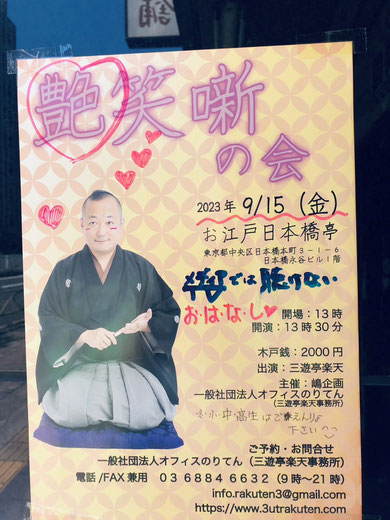 艶笑噺
の会
2023年 9/15(金)
お江戸日本橋亭
東京都中央区日本橋本町3-1-6
日本橋永谷ビル1階
では聴けない
お・は・な・し
開場:13時
開演:13時30分
木戸銭:2000円
出演:三遊亭楽天
主催:嶋企画
一般社団法人オフィスのりてん
(三遊亭楽天事務所)
小・中・高生はご遠慮
下さい
ご予約・お問合せ
一般社団法人オフィスのりてん(三遊亭楽天事務所)
電話/FAX兼用 03 6884 6632(9時~21時)
info.rakuten3@gmail.com
https://www.3utrakuten.com